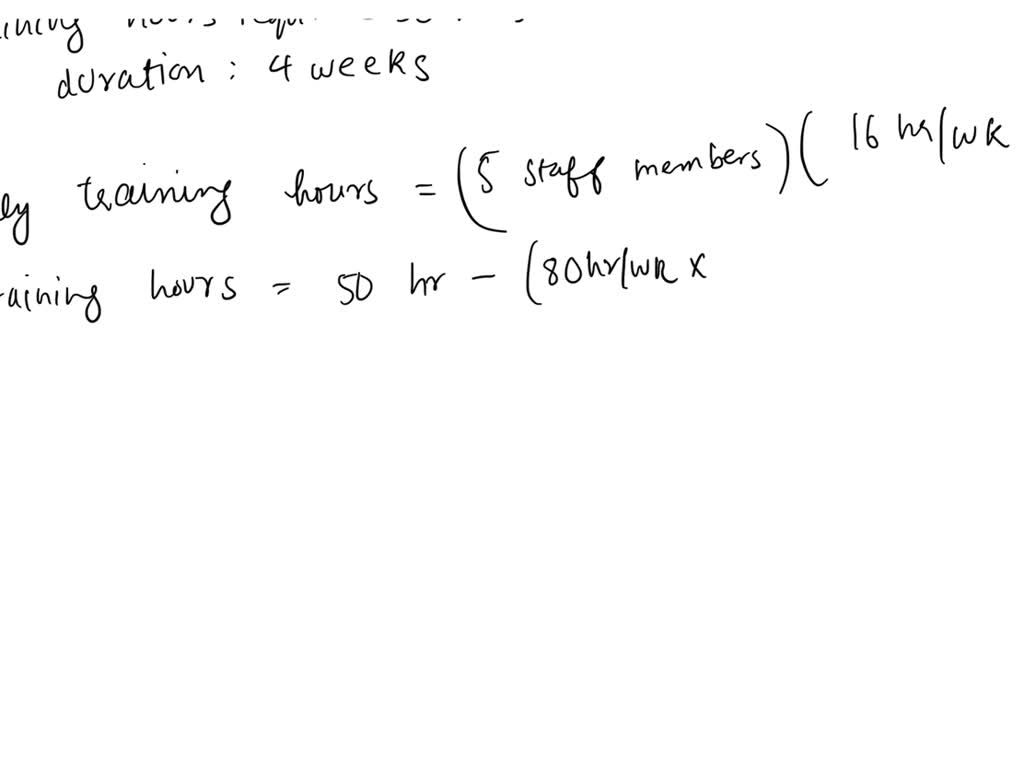 hours
duration : 4 weeks
training hours = (5 staff members)( 16 hr/wk
raining hours = 50 hr - (80hr/wk x